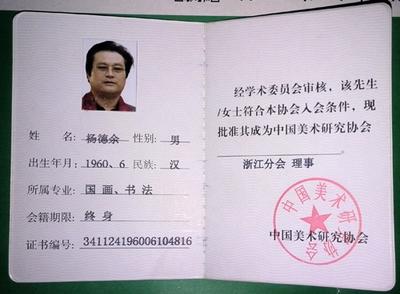 姓 名： 杨德余 性别： 男
出生年月：1960、6 民族：汉
所属专业：国画、书法
会籍期限：终身
证书编号：341124196006104816
经学术委员会审核，该先生
/女士符合本协会入会条件，现
批准其成为中国美术研究协会
浙江分会 理事
中国美术研究协会
中国美术研究协会